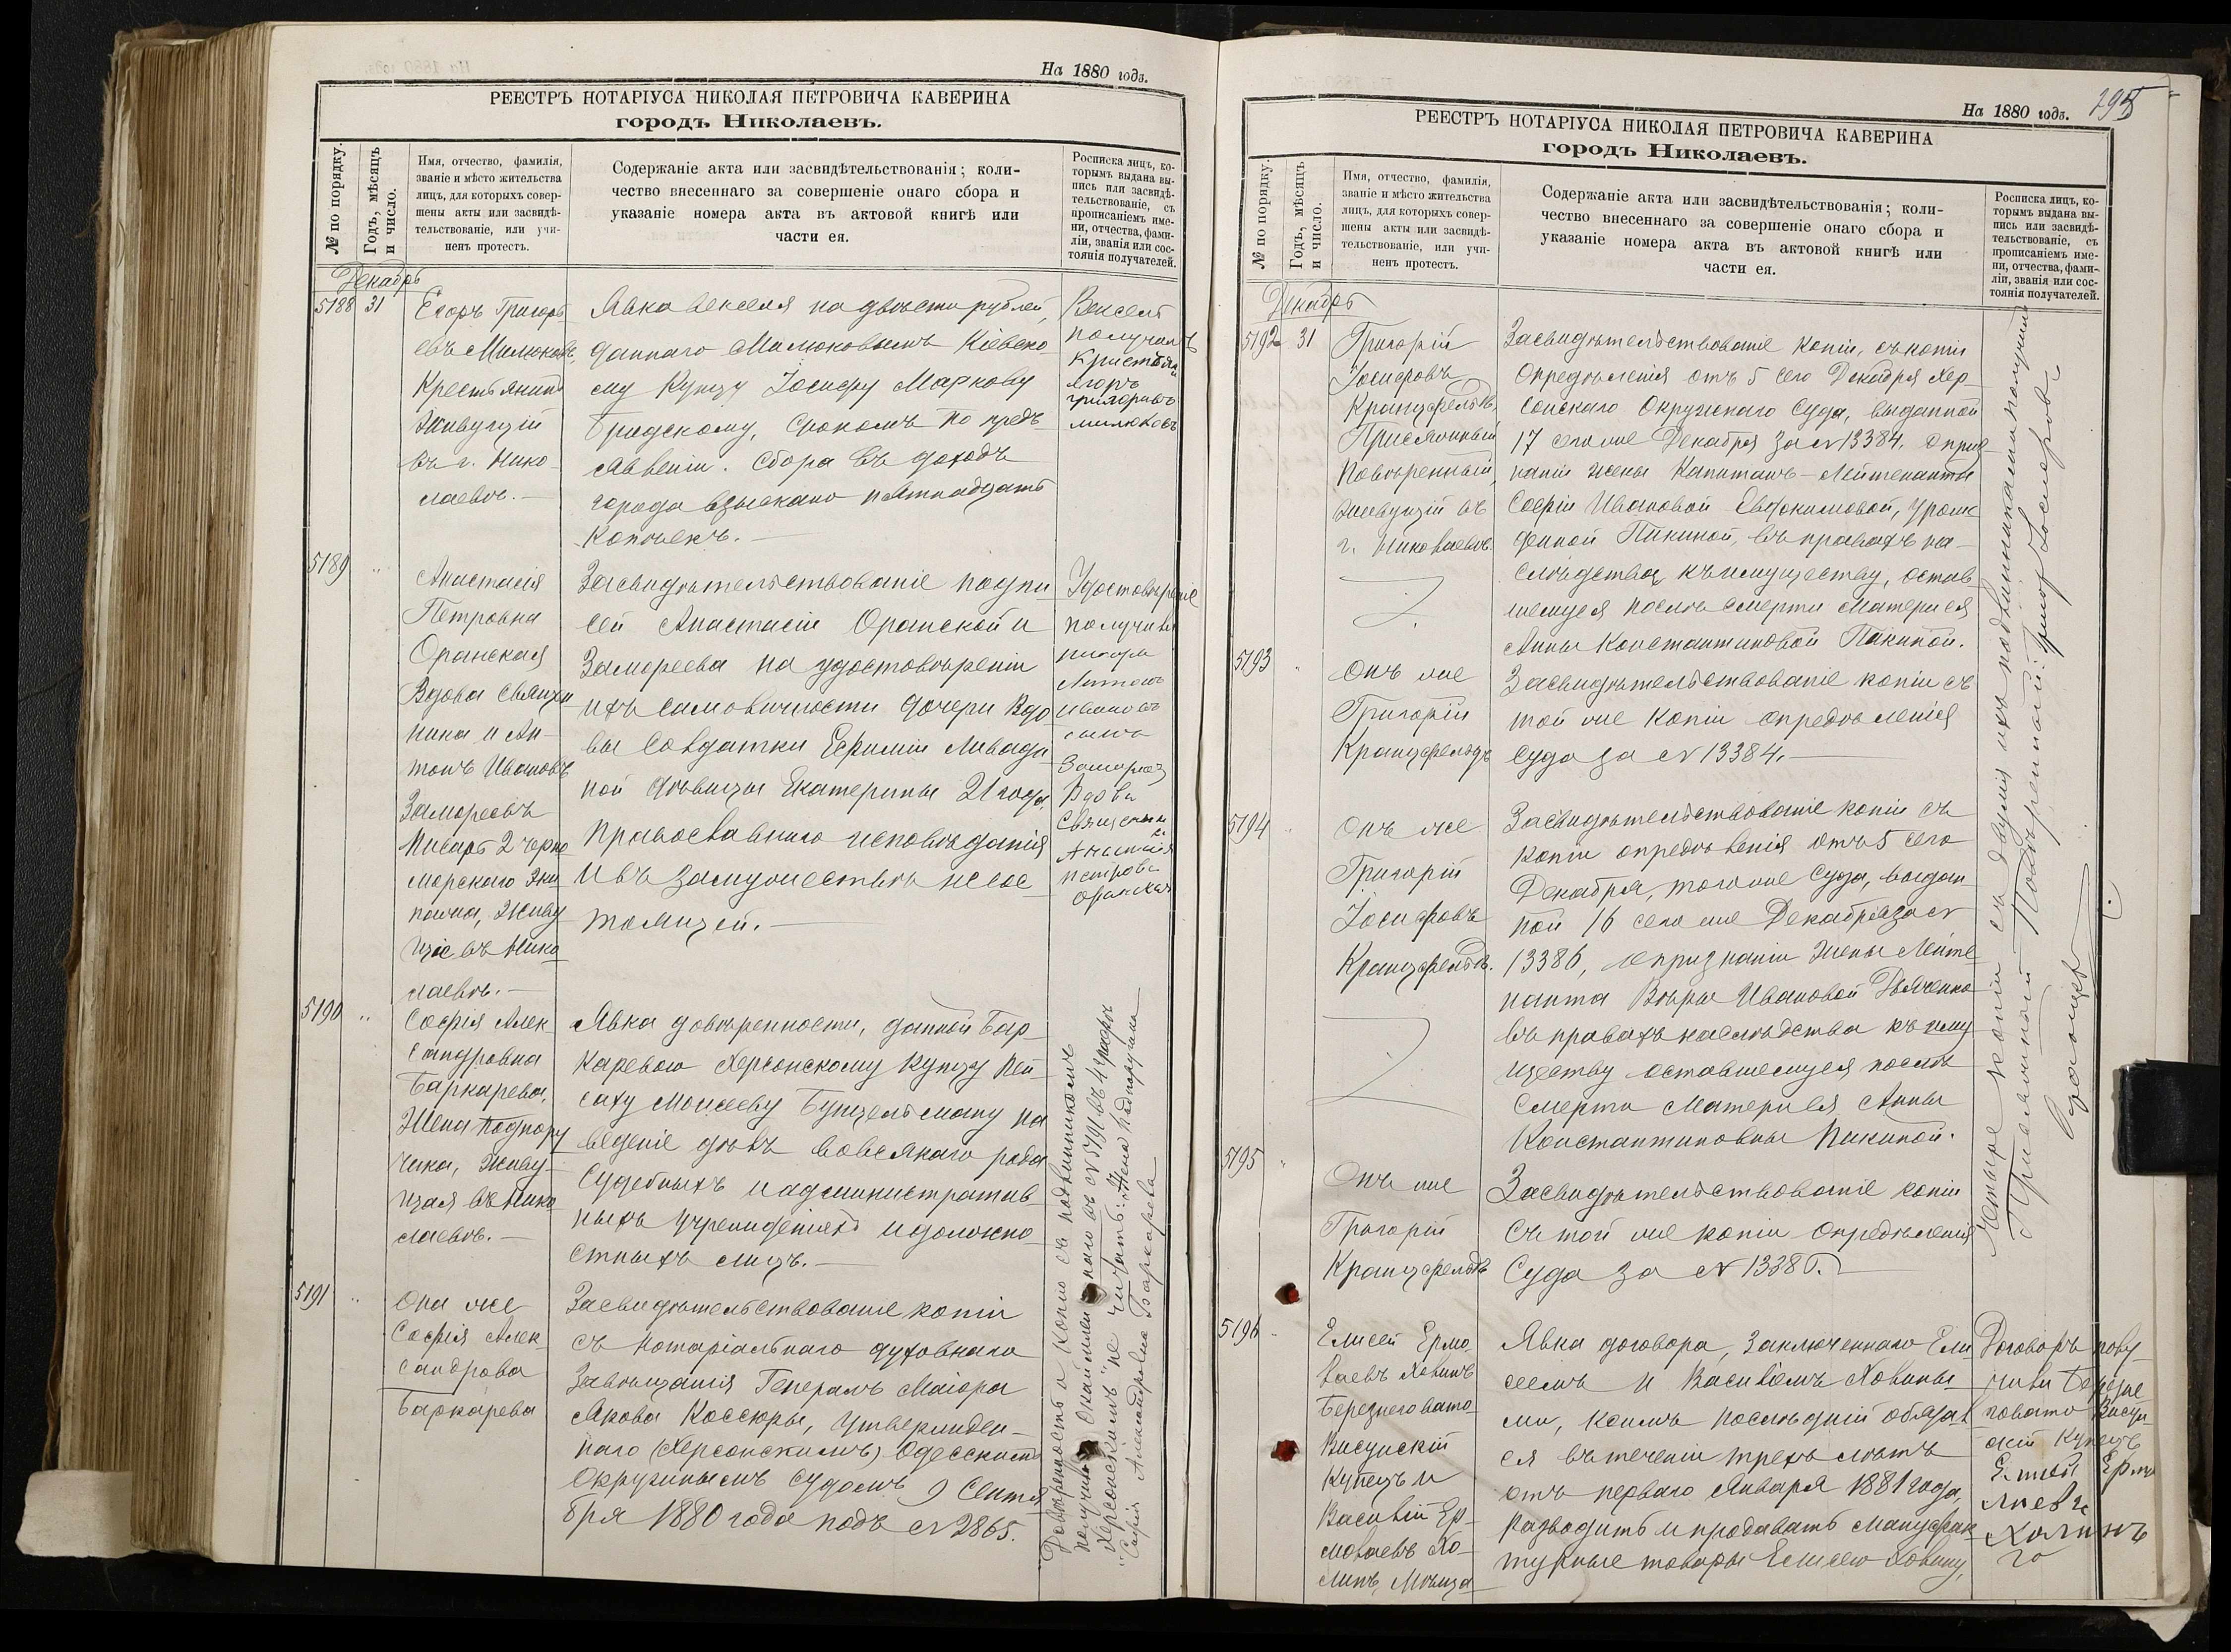 На 1880 годъ.
РЕЕСТРЪ НОТАРІУСА НИКОЛАЯ ПЕТРОВИЧА КАВЕРИНА
городъ Николаевъ.
№ по порядку.
Годъ, мѣсяцъ
и число.
Имя, отчество, фамилія,
званіе и мѣсто жительства
лицъ, для которыхъ совер-
шены акты или засвидѣ-
тельствованіе, или учи-
ненъ протестъ.
Содержаніе акта или засвидѣтельствованія; коли-
чество внесеннаго за совершеніе онаго сбора и
указаніе номера акта въ актовой книгѣ или
части ея.
Росписка лицъ, ко-
торымъ выдана вы-
пись или засвидѣ-
тельствованіе, съ
прописаніемъ име-
ни, отчества, фами-
ліи, званія или сос-
тоянія получателей.
Декабрь
5188 31
Егоръ Григорь
евъ Милюковъ,
Крестьянинъ
Живущій
въ г. Нико-
лаевѣ.
Явка векселя на двѣсти рублей,
даннаго Милюковымъ Кіевско
му Купцу Іосифу Маркову
Бродскому, срокомъ по предъ
явленіи. Сбора въ доходъ
города взыскано пятнадцать
копѣекъ.
Вексель
получилъ
Егоръ
григорьевъ
милюковъ
5189 "
Анастасія
Петровна
Оранская
Вдова Священ
ника и Ан-
тонъ Ивановъ
Замореевъ
Писарь 2 Черно
морского Эки
пажа, Живу
щіе въ Нико
лаевѣ.
Засвидѣтельствованіе подпи
сей Анастасіи Оранской и
Замореева на удостовѣреніи
ихъ самоличности дочери Вдо
вы Солдатки Ефиміи Ливади
ной дѣвицы Екатерины 21 года
православнаго исповѣданія
и въ замужествѣ не сос
тоящей.
Удостовѣреніе
получили
писарь
Антонъ
Ивановъ
сынъ
Вдова
Священника
петрова
Оранская
5190 "
Софія Алек
сандровна
Баркарева,
Жена подпору
чика, Живу-
щая въ Нико
лаевѣ.
Явка довѣренности, данной Бар
каревою Херсонскому Купцу Пей
саху Моисееву Бунцельману на
веденіе дѣлъ во всякаго рода
Судебныхъ и административ
ныхъ учрежденіяхъ и должно
стныхъ лицъ.
5191 "
Она же
Софія Алек
сандрова
Баркарева
Засвидѣтельствованіе копіи
съ нотаріальнаго духовнаго
Завѣщанія Генералъ Маіора
Якова Коссюры, утвержден-
наго (Херсонскимъ) Одесскимъ
Окружнымъ Судомъ 9 Сентя
бря 1880 года подъ № 2865.
Довѣренность и копію съ подлинникомъ
получила
Херсонскимъ" не читать: Жена Подпоручика
"Софія Александровна Баркарева
На 1880 годъ.
РЕЕСТРЪ НОТАРІУСА НИКОЛАЯ ПЕТРОВИЧА КАВЕРИНА
городъ Николаевъ.
№ по порядку.
Годъ, мѣсяцъ
и число.
Имя, отчество, фамилія,
званіе и мѣсто жительства
лицъ, для которыхъ совер-
шены акты или засвидѣ-
тельствованіе, или учи-
ненъ протестъ.
Содержаніе акта или засвидѣтельствованія; коли-
чество внесеннаго за совершеніе онаго сбора и
указаніе номера акта въ актовой книгѣ или
части ея.
Росписка лицъ, ко-
торымъ выдана вы-
пись или засвидѣ-
тельствованіе, съ
прописаніемъ име-
ни, отчества, фами-
ліи, званія или сос-
тоянія получателей.
Декабрь
5192 31
Григорій
Іосифовъ
Кранцфельдъ,
Присяжный
Повѣренный,
живущій въ
г. Николаевѣ
Засвидѣтельствованіе копіи, съ копіи
Опредѣленія отъ 5 сего Декабря Хер-
сонскаго Окружнаго Суда, выданной
17 сего же Декабря за № 13384, о приз
наніи жены Капитанъ-Лейтенанта
Софіи Ивановой Евдокимовой, урож
денной Пикиной, въ правахъ на-
слѣдства къ имуществу, остав
шемуся послѣ смерти матери ея
Анны Константиновой Пикиной.
5193 "
Онъ же
Григорій
Кранцфельдъ
Засвидѣтельствованіе копіи съ
той же копіи опредѣленія
Суда за № 13384.
5194 "
Онъ же
Григорій
Іосифовъ
Кранцфельдъ.
Засвидѣтельствованіе копіи съ
копіи опредѣленія отъ 5 сего
Декабря, того же Суда, выдан
ной 16 сего же Декабря за №
13386, о признаніи Жены Лейте
нанта Вѣры Ивановой Дьяченко
въ правахъ наслѣдства къ иму
ществу оставшемуся послѣ
Смерти Матери ея Анны
Константиновны Пикиной.
5195 "
Онъ же
Григорій
Кранцфельдъ
Засвидѣтельствованіе копіи
съ той же копіи Опредѣленія
Суда за № 13386.
Четыре копіи съ двумя ихъ подлинниками получилъ
Присяжный Повѣренный: Григ Іосифовъ
5196 "
Елисей Ермо
лаевъ Холинъ
Березнеговато-
Висунскій
Купецъ и
Василій Ер-
молаевъ Хо-
линъ, Мѣща
Явка договора, заключеннаго Ели
сеемъ и Василіемъ Холины
ми, коимъ послѣдній обязал
ся въ теченіи трехъ лѣтъ
отъ перваго Января 1881 года,
разводить и продавать мануфак
турные товары Елисею Холину,
Договоръ полу-
чилъ Березне
говато Висун
скій Купецъ
Елисей Ермо
лаевъ
Холинъ